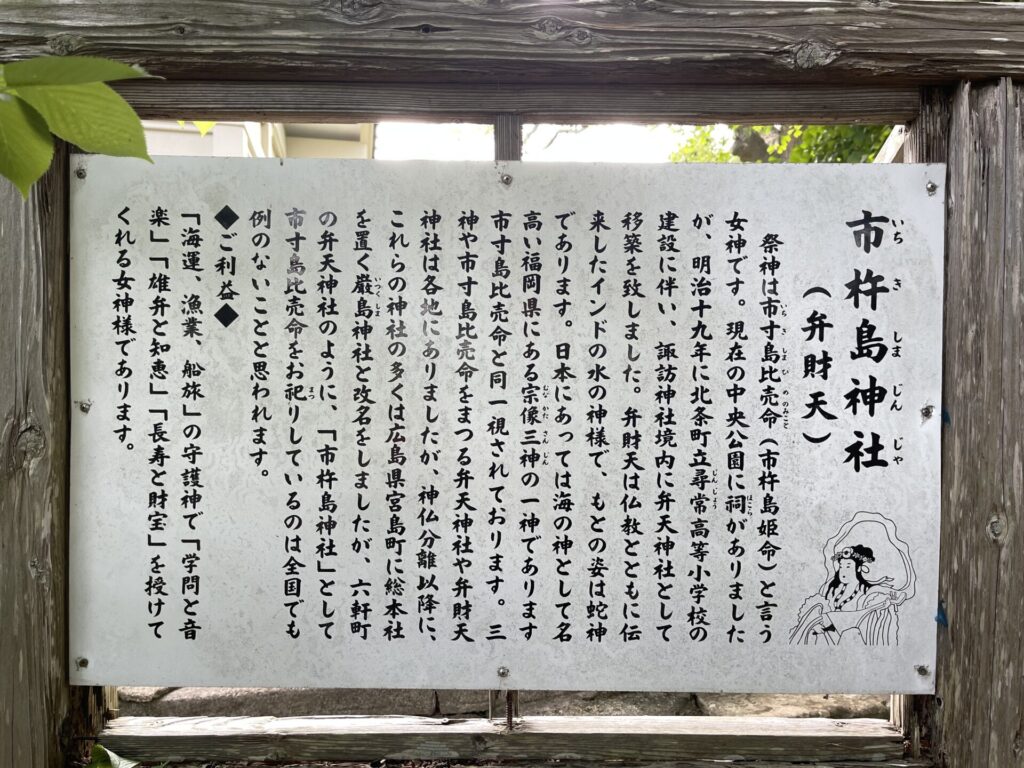 市杵島神社
（弁財天）
祭神は市寸島比売命（市杵島姫命）と言う
女神です。現在の中央公園に祠がありました
が、明治十九年に北条町立尋常高等小学校の
建設に伴い、諏訪神社境内に弁天神社として
移築を致しました。弁財天は仏教とともに伝
来したインドの水の神様で、もとの姿は蛇神
であります。日本にあっては海の神として名
高い福岡県にある宗像三神の一神であります
市寸島比売命と同一視されております。三
神や市寸島比売命をまつる弁天神社や弁財天
神社は各地にありましたが、神仏分離以降に、
これらの神社の多くは広島県宮島町に総本社
を置く厳島神社と改名をしましたが、六軒町
の弁天神社のように、「市杵島神社」として
市寸島比売命をお祀りしているのは全国でも
例のないことと思われます。
◆ご利益◆
「海運、漁業、船旅」の守護神で「学問と音
楽」「雄弁と知恵」「長寿と財宝」を授けて
くれる女神様であります。